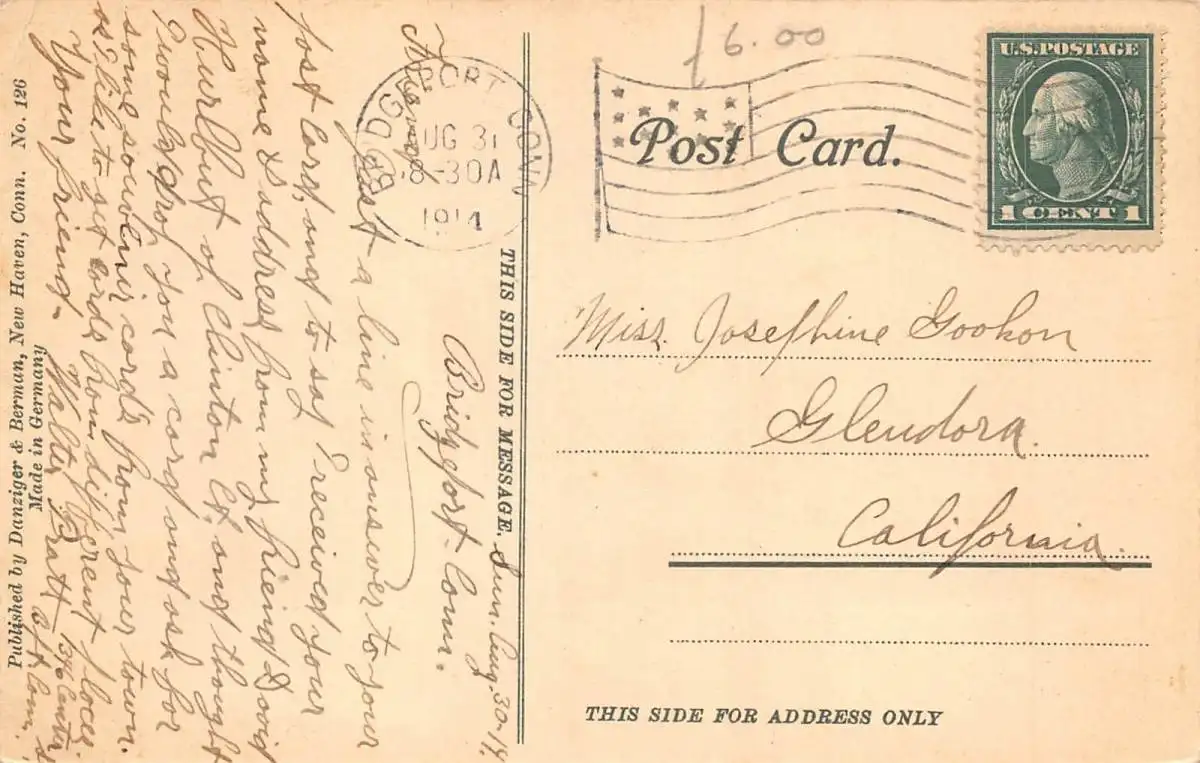 16.00
U.S. POSTAGE
1 CENT 1
Post Card.
BRIDGEPORT CONN
AUG 31
8-30A
1914
THIS SIDE FOR MESSAGE.
Sun. Aug. 30-14.
Bridgeport-Conn.
Friend,
Just a line in answer to your
post card, and to say I received your
name & address from my friend David
Hurlbut of Clinton Ct. and thought
I would drop you a card and ask for
some souvenir cards from your town.
as I like to get cards from different places.
Your friend-
Walter Bratt 136 Center St
Bpt. Conn.
Miss. Josephine Gookon
Glendora.
California.
THIS SIDE FOR ADDRESS ONLY
Published by Danziger & Berman, New Haven, Conn. No. 126
Made in Germany